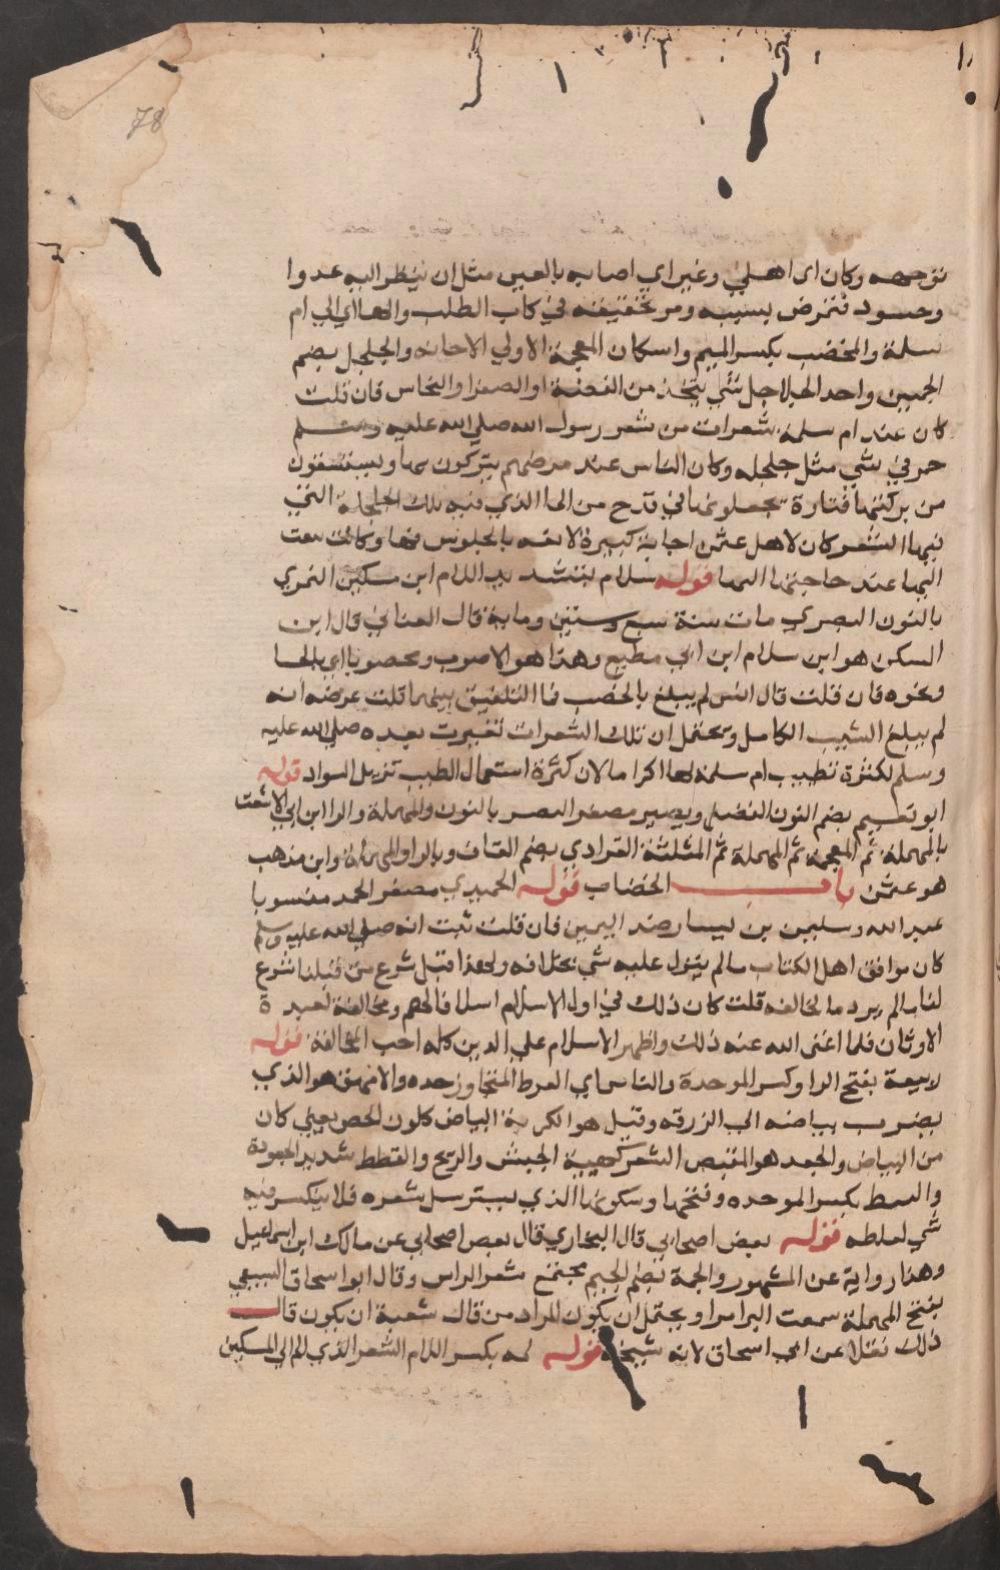 78
توجهه وكان اى اهلي وغير اي اصابه بالعين مثل ان ينظر اليه عدوا
وحسود فتمرض بسببه ومر تحقيقه في كتاب الطلب والها الي ام
سلمة والمخضب بكسر الميم واسكان المعجمة الاولي الاجانه والجلجل بضم
الجيمين واحد الجلاجل شي يتخذ من الفضة او الصفر او النحاس فان قلت
كان عند ام سلمة شعرات من شعر رسول الله صلي الله عليه وسلم
حمر في شي مثل جلجله وكان الناس عند مرضهم يتبركون بها ويستشفون
من بركتها فتارة يجعلونها في قدح من الما الذي فيه تلك الجلجلة التي
فيها الشعر كان لاهل عثمن اجانة كبيرة لايقه بالجلوس فيها وكانت بعث
اليها عند حاجتها اليها قوله سلام بتشديد اللام ابن مسكين النمري
بالنون البصري مات سنة سبع وستين وماية قال الغساني قال ابن
السكن هو ابن سلام ابن ابي مطيع وهذا هو الاصوب ومخضوبا اي بالحنا
ونحوه فان قلت قال انس لم يبلغ بالخضب فما التلفيق بينهما قلت غرضه انه
لم يبلغ الشيب الكامل ويحتمل ان تلك الشعرات تغيرت بعده صلي الله عليه
وسلم لكثرة تطييب ام سلمة لها اكراما لان كثرة استعمال الطيب تزيل السواد قوله
ابو نعيم بضم النون الفضل ونصير مصغر النصر بالنون والمهملة والرا ابن ابي الاشعث
بالمهملة ثم المعجمة ثم المهملة ثم المثلثة القرادي بضم القاف وبالرا والمهملة وابن موهب
هو عثمن باب الخضاب قوله الحميدي مصغر الحمد منسوبا
عبد الله وسليمن بن يسار ضد اليمين فان قلت ثبت انه صلي الله عليه وسلم
كان يوافق اهل الكتاب ما لم ينزل عليه شي بخلافه ولهذا قيل شرع من قبلنا شرع
لنا ما لم يرد ما يخالفه قلت كان ذلك في اول الاسلام اسلافا لهم ومخالفة لعبدة
الاوثان فلما اغنى الله عنه ذلك واظهر الاسلام علي الدين كله احب المخالفة قوله
ربيعة بفتح الرا وكسر الموحدة والبائن اي المفرط المتجاوز حده والامهق هو الذي
يضرب بياضه الي الزرقه وقيل هو الكريه البياض كلون الجص يعني كان
من البياض والجعد هو المنقبض الشعر كهيية الحبش والزنج والقطط شديد الجعودة
والسبط بكسر الموحده وفتحها وسكونها الذي يسترسل شعره فلا ينكسر فيه
شي لغلظه قوله بعض اصحابي قال البخاري قال بعض اصحابي عن مالك ابن اسماعيل
وهذا رواية عن المشهور والجمة بضم الجيم مجتمع شعر الراس وقال ابو اسحاق السبيعي
بفتح المهملة سمعت البرا مرا ويحتمل ان يكون المراد من قال شعبة ان يكون قال
ذلك نقلا عن ابي اسحاق لانه شيخه قوله لمه بكسر اللام الشعر الذي الم الي المنكبين